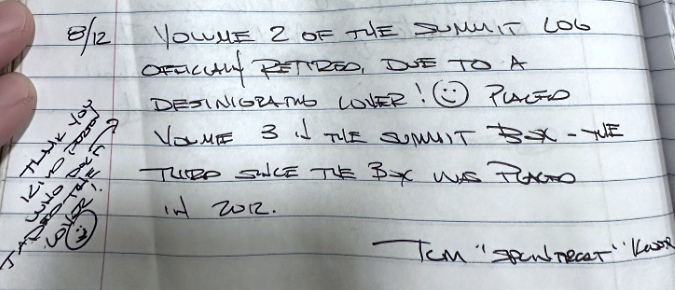 8/12 VOLUME 2 OF THE SUMMIT LOG
OFFICIALLY RETIRED, DUE TO A
DESINIGRATING COVER! ☺ PLACED
VOLUME 3 IN THE SUMMIT BOX - THE
THIRD SINCE THE BOX WAS PLACED
IN 2012.
TOM
THANK YOU
KIND
WHO
TAPED THE
COVER! ☺